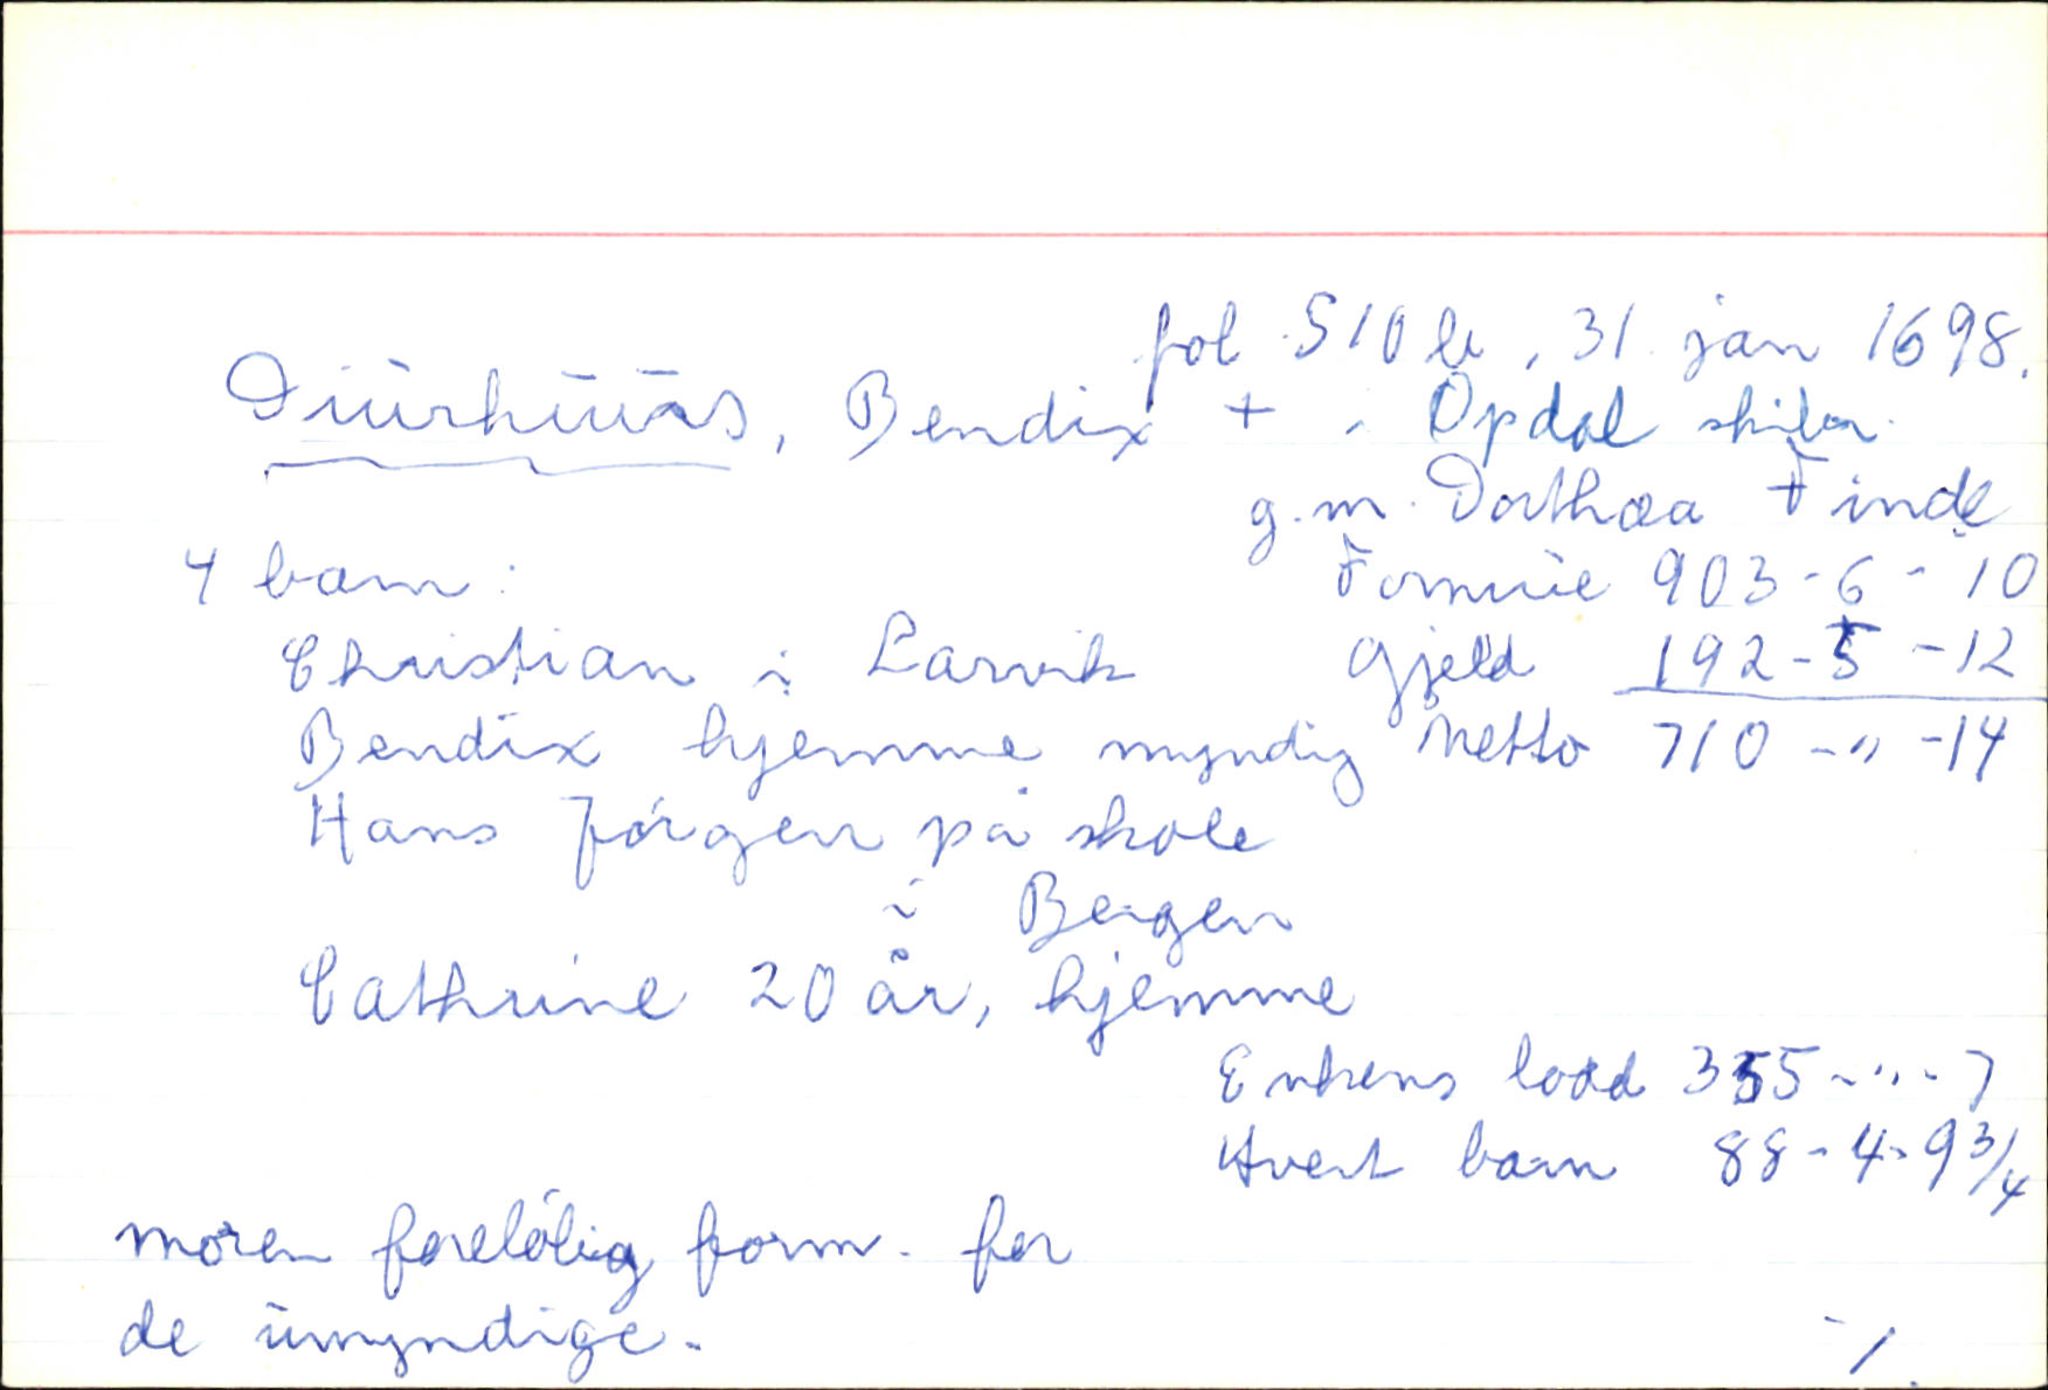 fol 510 b, 31 jan 1698.
Diurhuus, Bendix + i Opdal skibr.
g.m. Dorthæa Finde
4 barn:
Formue 903-6-10
Christian i Larvik Gjeld 192-5-12
Bendix hjemme myndig Netto 710-"-14
Hans Jørgen på skole
i Bergen
Cathrine 20 år, hjemme
Enkens lodd 355-"-7
Hvert barn 88-4-9 3/4
moren foreløbig form. for
de umyndige.